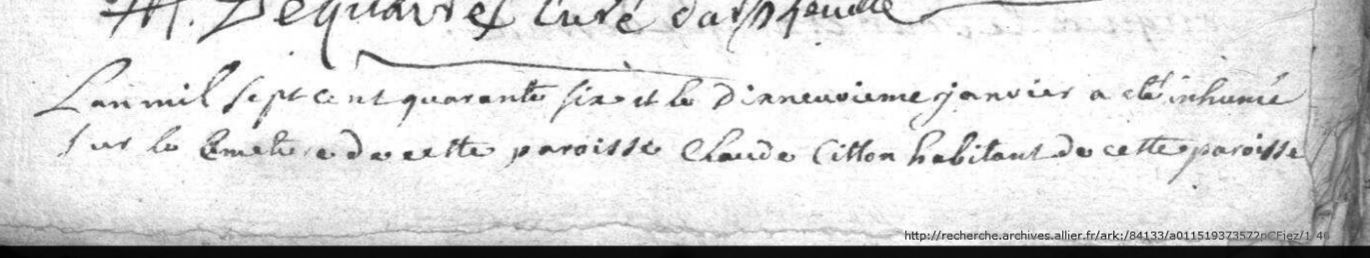 M. Dequaire Curé darpheuille
Lan mil sept cent quarante six et le dixneuvieme janvier a eté inhumé
sur le Cmetiere de cette paroisse Claude Citton habitant de cette paroisse
http://recherche.archives.allier.fr/ark:/84133/a011519373572pCFjez/1 46